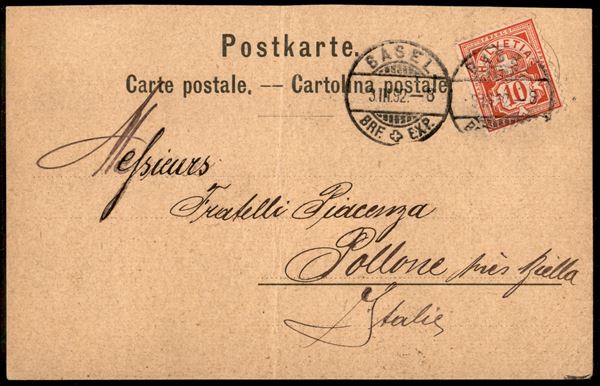 Postkarte.
Carte postale. — Cartolina postale
BASEL
3.III.92.—8
BRF. EXP.
FRANCO
HELVETIA
10
Messieurs
Fratelli Piacenza
Pollone près Biella
Italie